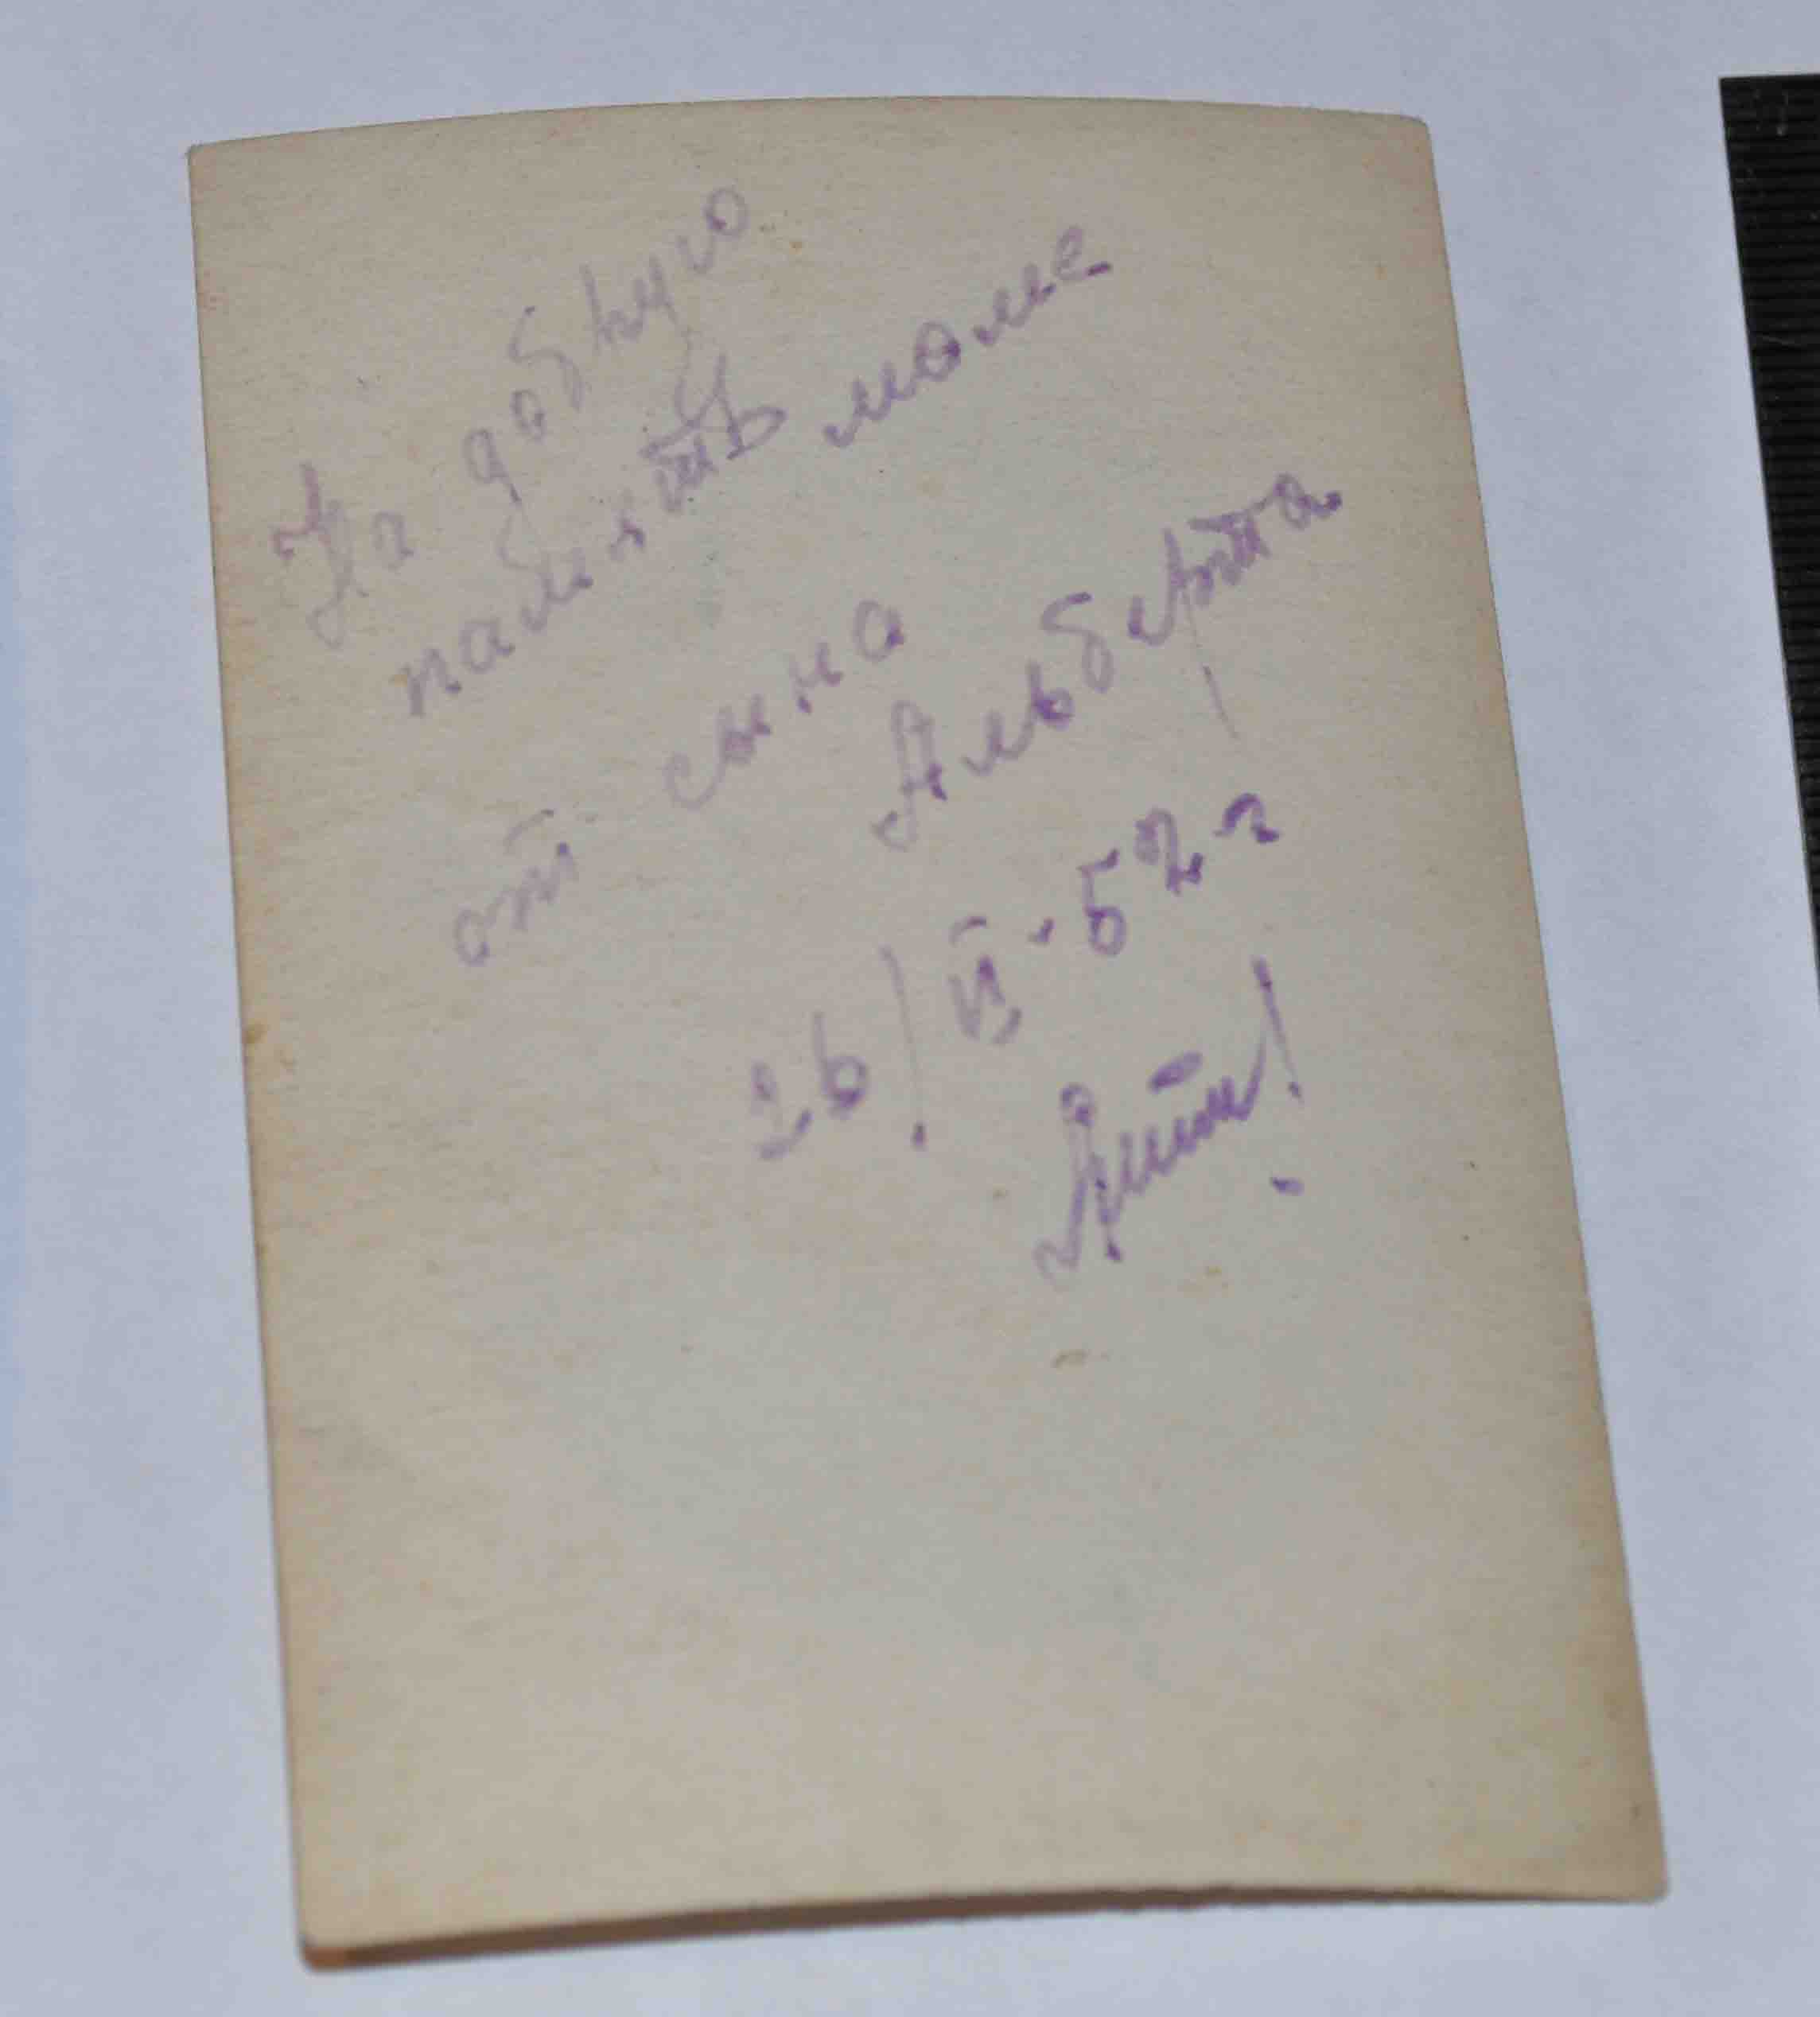 На добрую
память маме
от сына
Альберта
26/II-52 г